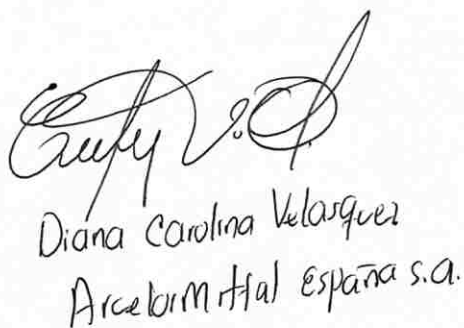 Diana Carolina Velasquez
ArcelorMittal España s.a.